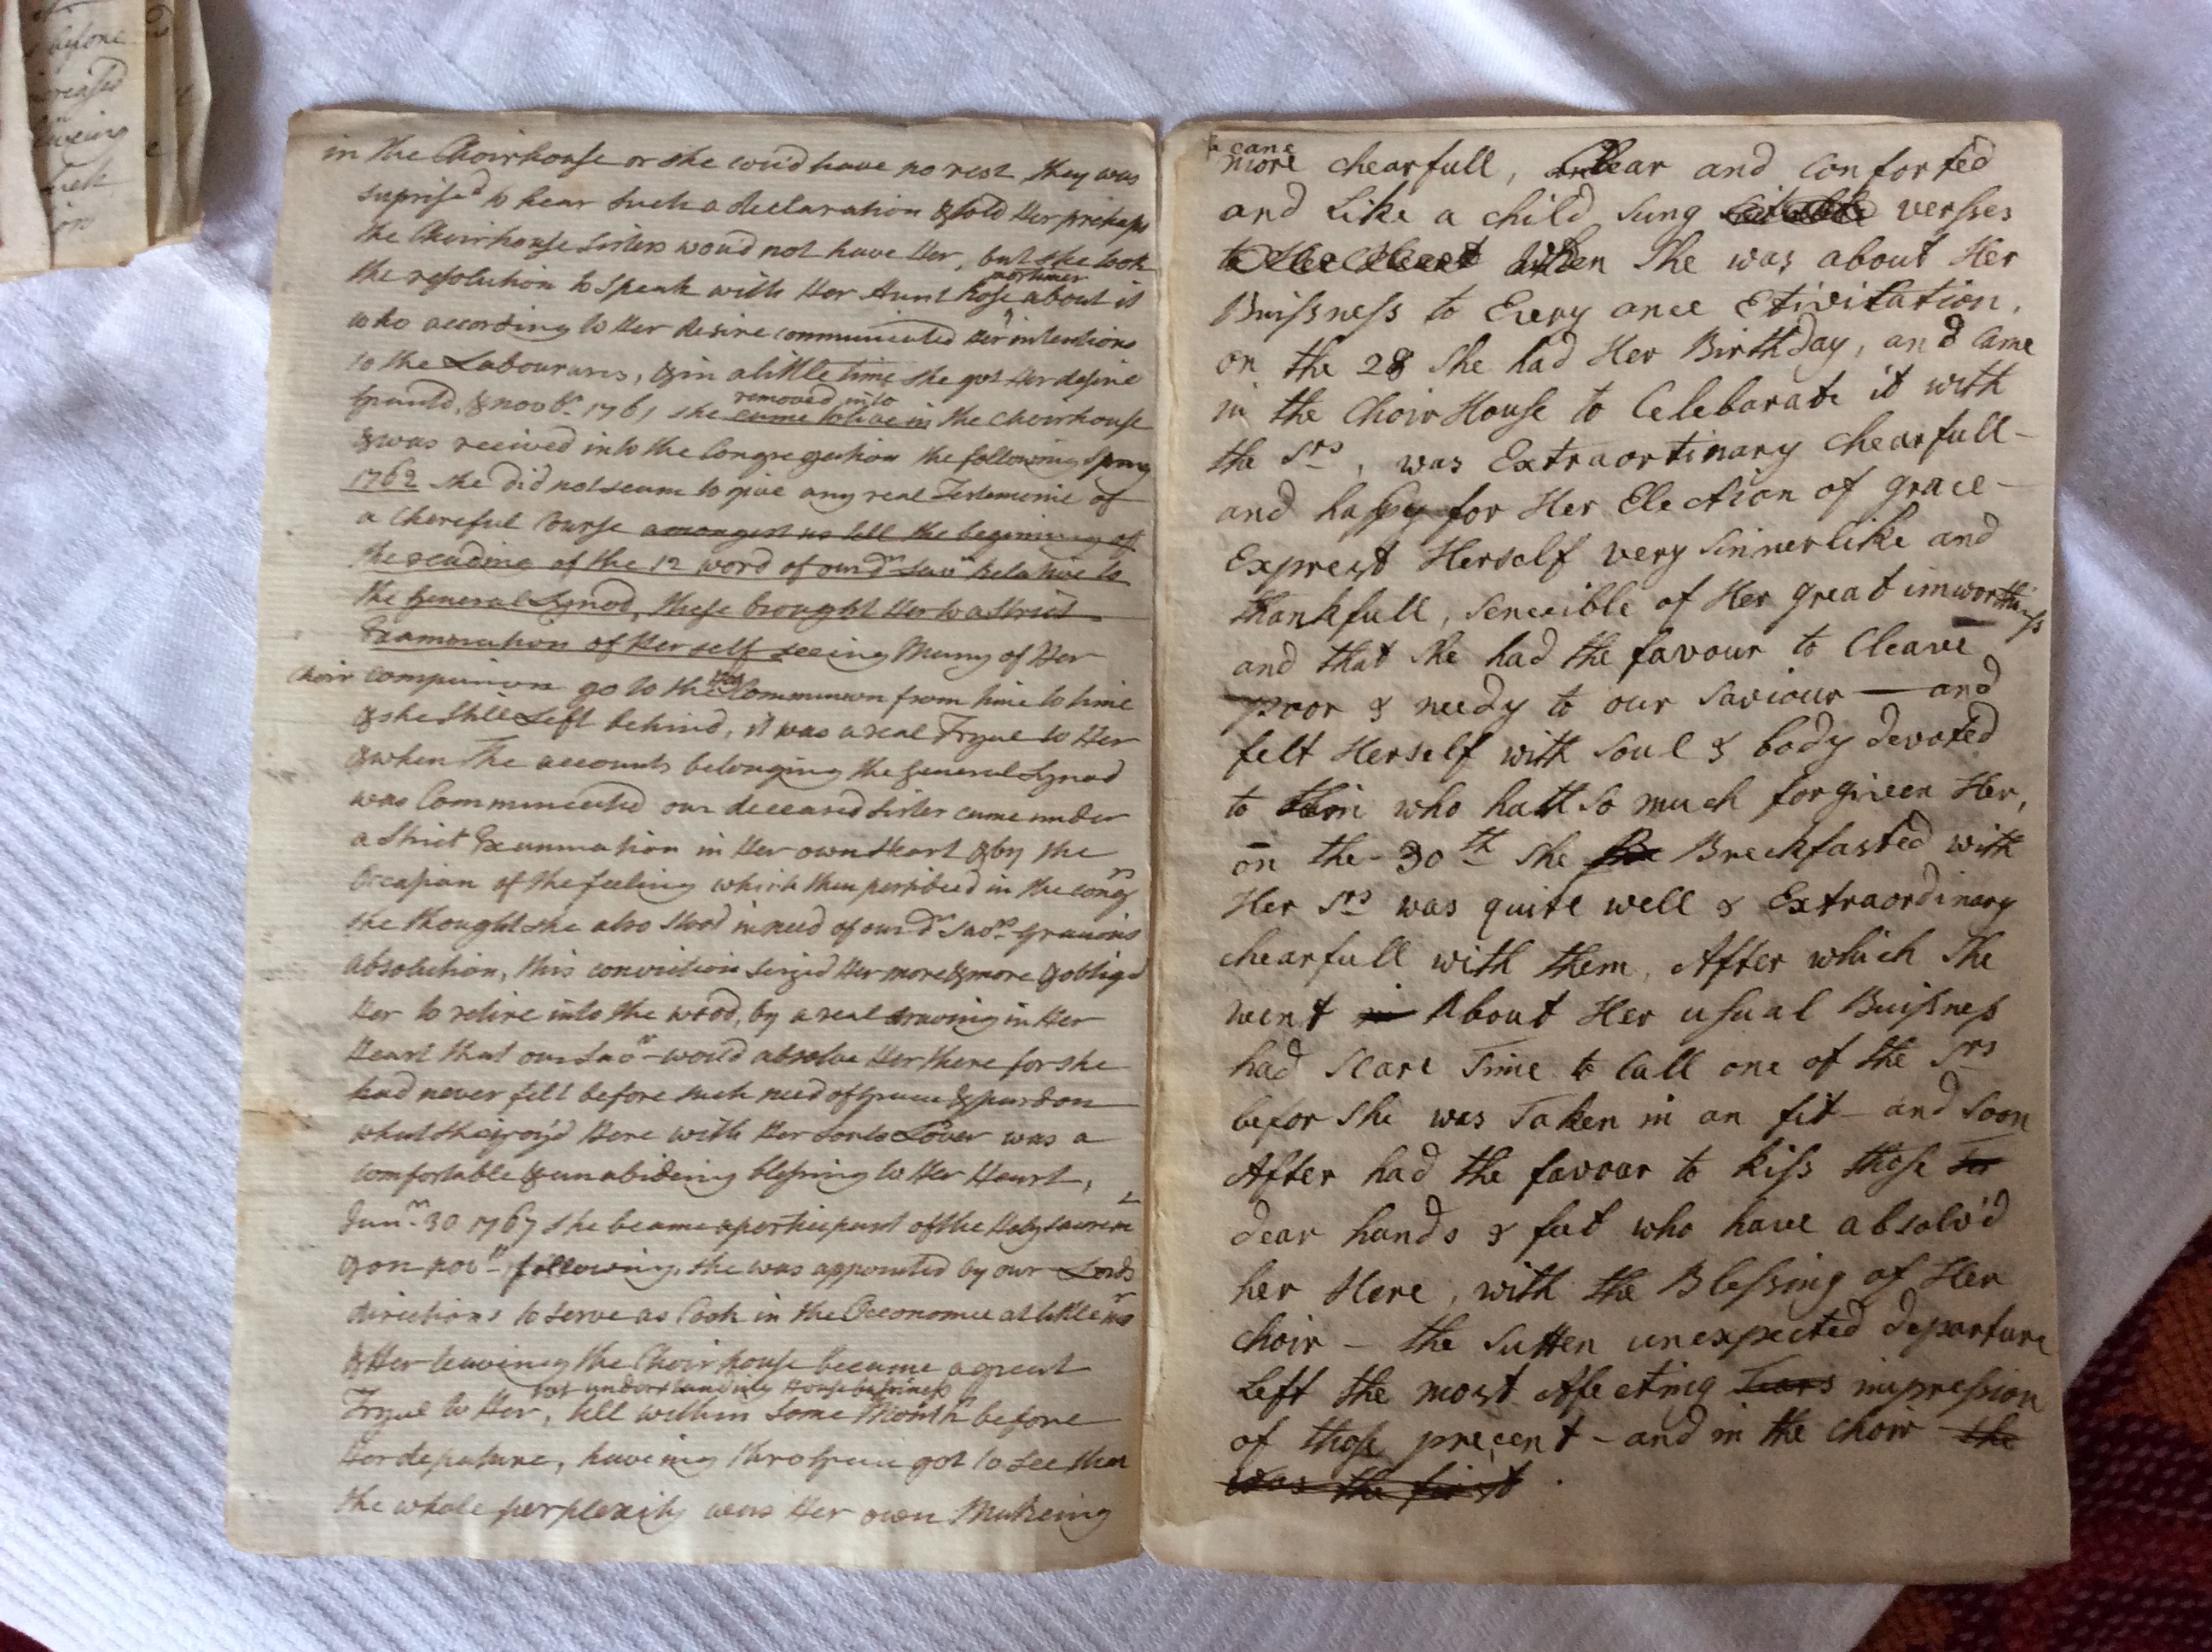 before
in the Choirhouse or she cou'd have no rest, they was
suprised to hear such a declaration & told Her prehaps
the Choirhouse Sisters wou'd not have Her, but she took
the resolution to speak with Her Aunt Rose mortimer about it
who according to Her desire communicated Her intentions
to the Labourures, & in a little time she got Her desire
grantd, & novbr 1761 she came to live in removed into the Choirhouse
& was received into the Congregation the following Spring
1762 she did not seam to give any real Testemonie of
a Chereful Course amongest us till the begining of
the reading of the 12 word of our dr Savr Relative to
the General Synod, these brought Her to a Strict
Examination of Herself seeing Many of Her
Choir companions go to the Communion from time to time
& she still Left behind, it was a real Tryal to Her
& when The accounts belonging the General Synod
was Communicated our deceased Sister came under
a Strict Examination in Her own Heart & by the
Occasion of the feeling which then in the congn
she thought she also stood in need of our dr Savrs gracious
absolution, this conviction seized Her more & more & obligd
Her to retire into the wood, by a real craving in Her
Heart that our Savr would absolve Her there for she
had never felt before such need of Grace & pardon
what she injoy'd Here with Her Souls Lover was a
comfortable & an abideing blessing to Her Heart,
Junr 30 1767 she became a perticepant of the Holy Sacrem
& on novr following, she was appointed by our Lords
directions to serve as Cook in the Oeconomie at little
& Her leaveing the Choir house became a great
Tryal to Her, not understanding House business till within some Month before
Her depature, haveing thro Grace got to see that
the whole perplexity was Her own Makeing
& came
more chearfull, Clear and Comforted
and Like a child Sung versses
to Her Heart When She was about Her
Buissness to Every ones Etivitation,
on the 28 She had Her Birthday, and Came
in the Choir House to Celebarate it with
the Srs, was Extraortinary chearfull
and happy for Her Election of grace
Exprest Herself very Sinnerlike and
thankfull, Sencible of Her great unworthiness
and that She had the favour to Cleave
poor & needy to our Saviour — and
felt Herself with Soul & body devoted
to who hath So much forgiven Her,
on the 30th She Breckfasted with
Her Srs was quite well & Extraordinary
chearfull with them, After which She
went in About Her usual Buisness
had Scare Time to Call one of the Srs
befor She was Taken in an fit and Soon
After had the favour to kiss those
dear hands & feet who have absolv'd
her Here, with the Blessing of Her
Choir — the Sutten unexpected departure
Left the most Afecting Tears impression
of those precent — and in the Choir the
was the first.